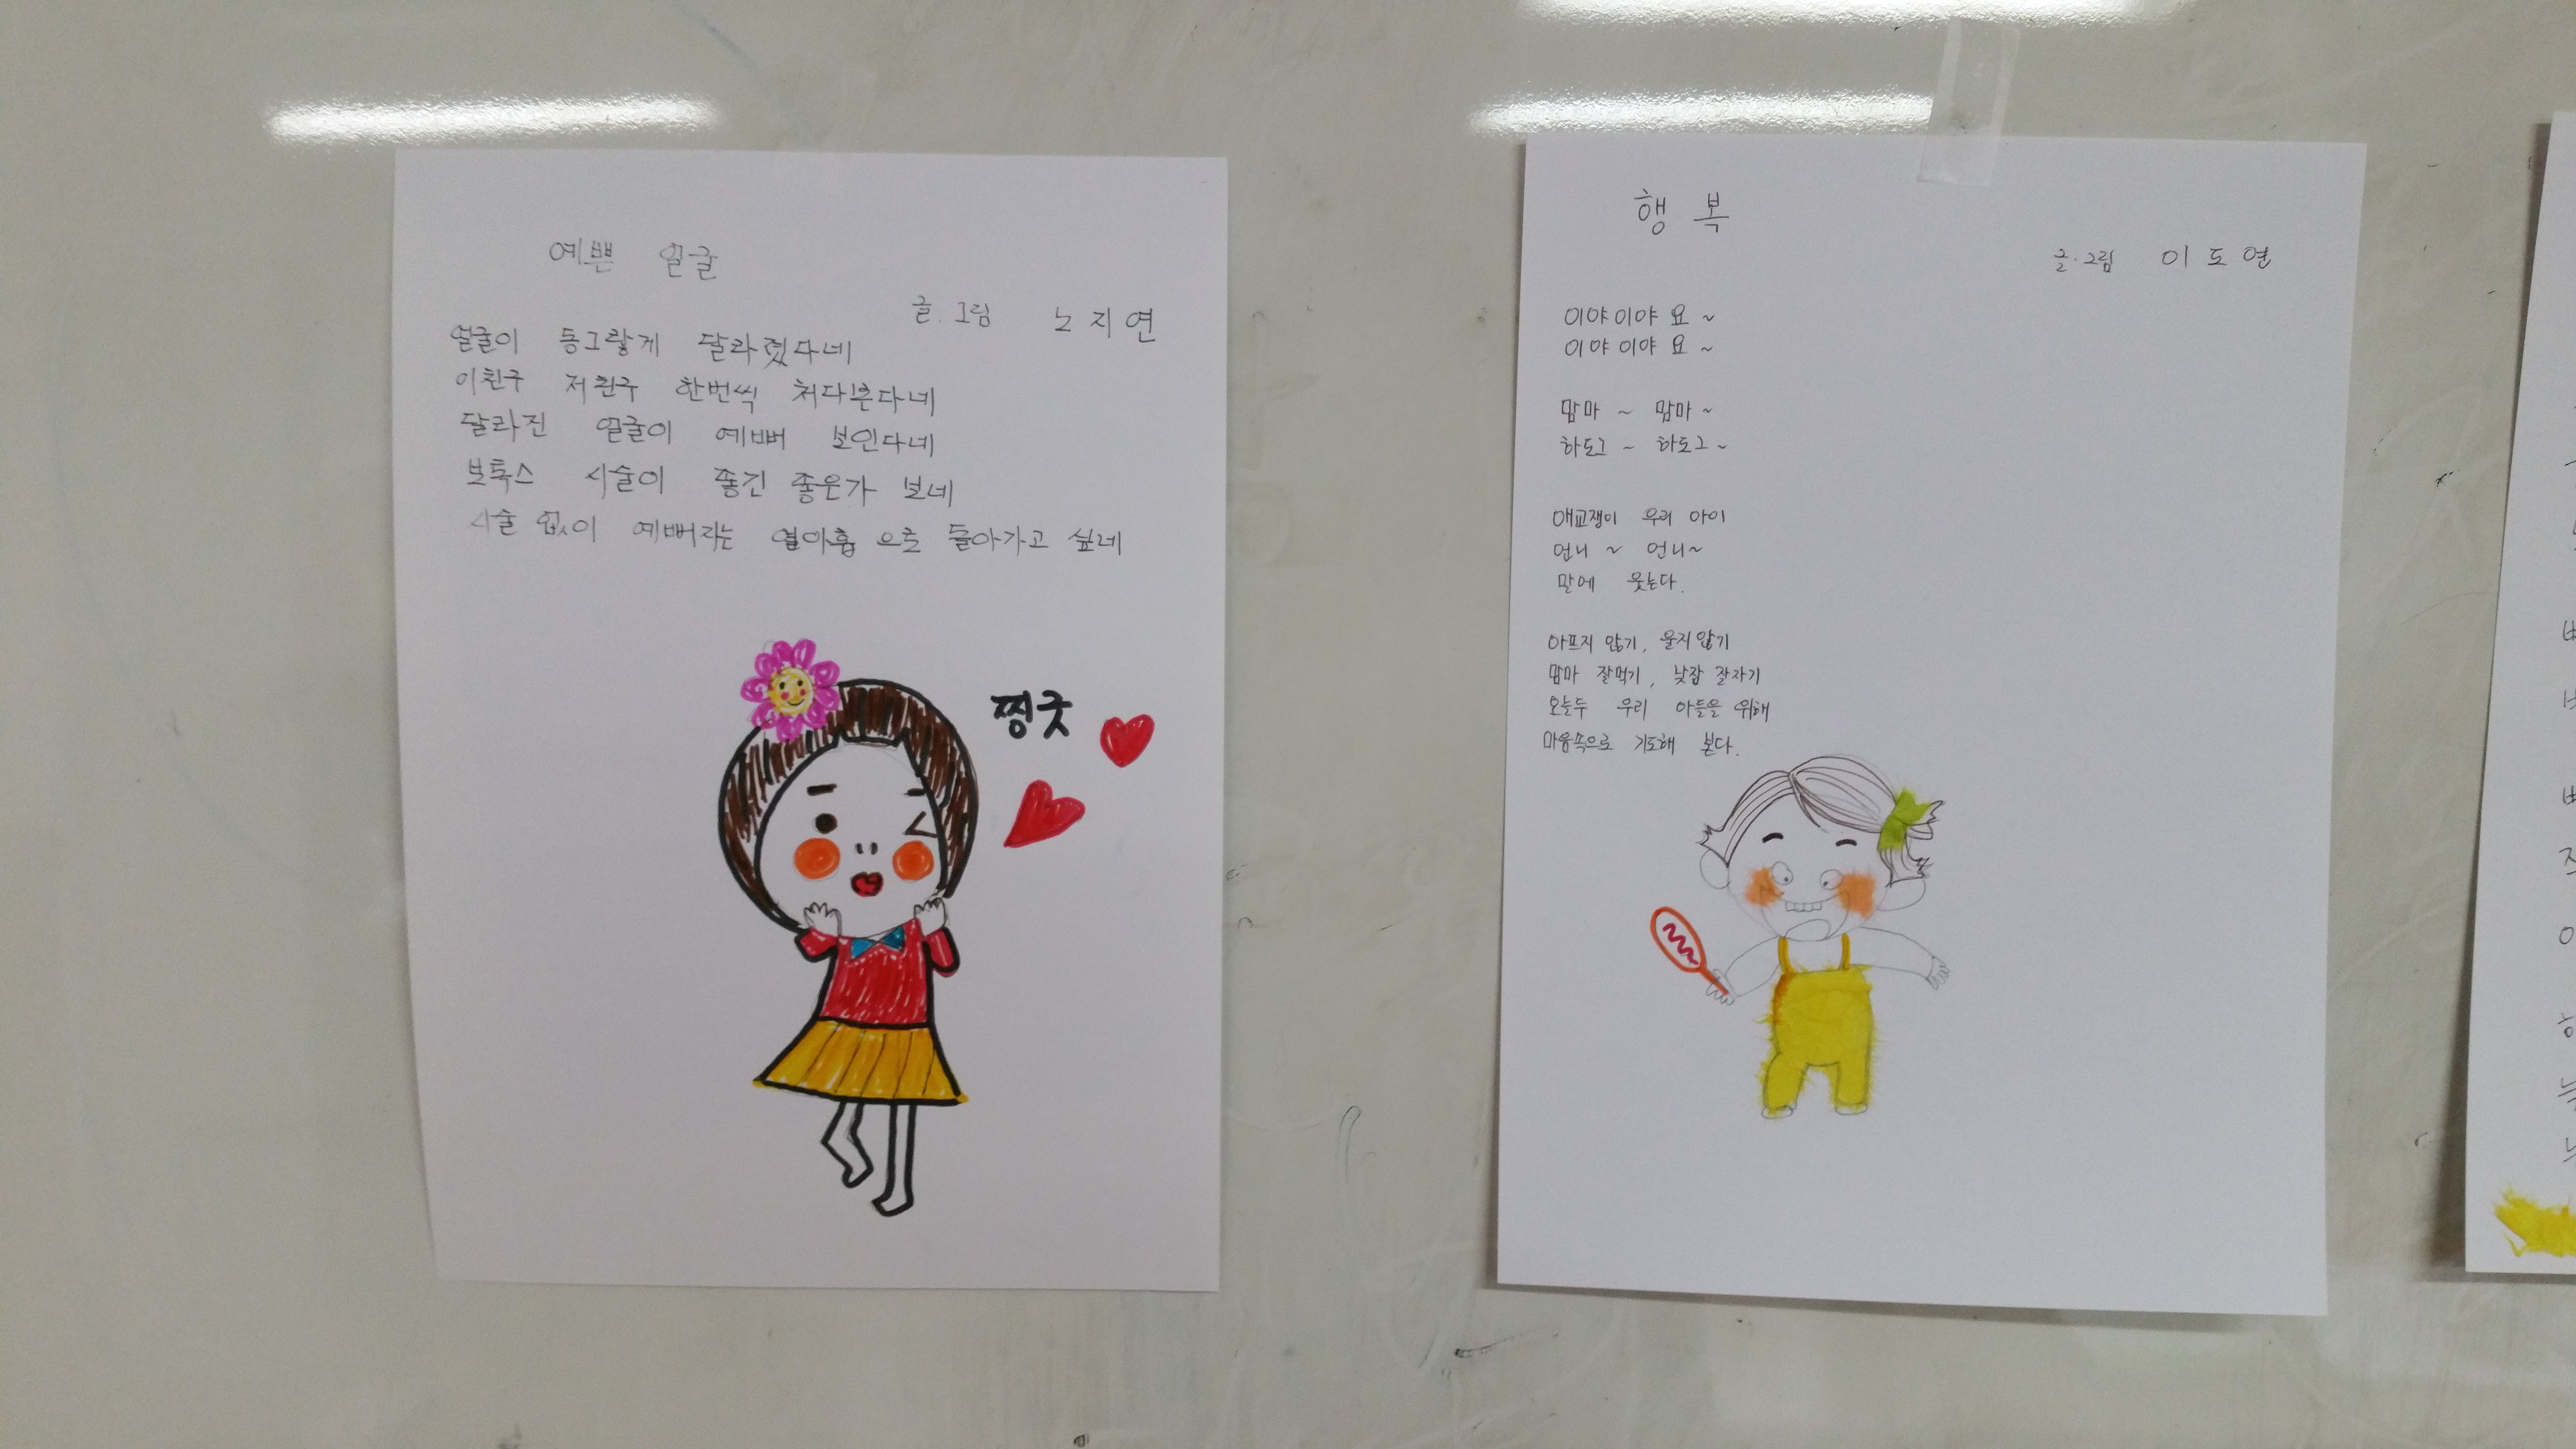 예쁜 얼굴
글.그림 노지연
얼굴이 둥그랗게 달라졌다네
이친구 저친구 한번씩 처다본다네
달라진 얼굴이 예뻐 보인다네
보톡스 시술이 좋긴 좋은가 보네
시술 없이 예뻐지는 열아홉 으로 돌아가고 싶네
찡긋
행복
글.그림 이도연
이야이야 요~
이야이야 요~
맘마 ~ 맘마~
하도그 ~ 하도그~
애교쟁이 우리 아이
언니 ~ 언니~
말에 웃는다.
아프지 않기, 울지않기
맘마 잘먹기, 낮잠 잘자기
오늘두 우리 아들을 위해
마음속으로 기도해 본다.